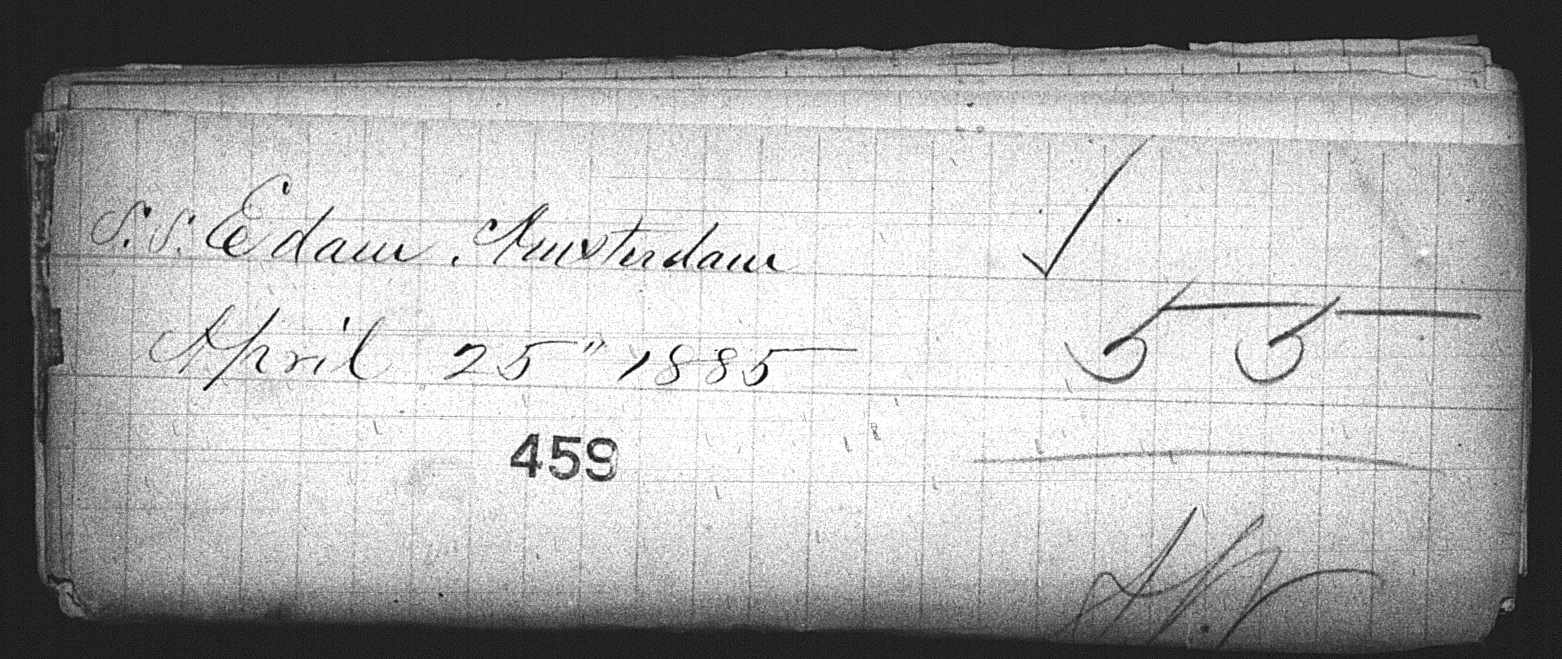 S.S. Edam. Amsterdam
April 25" 1885
459
55